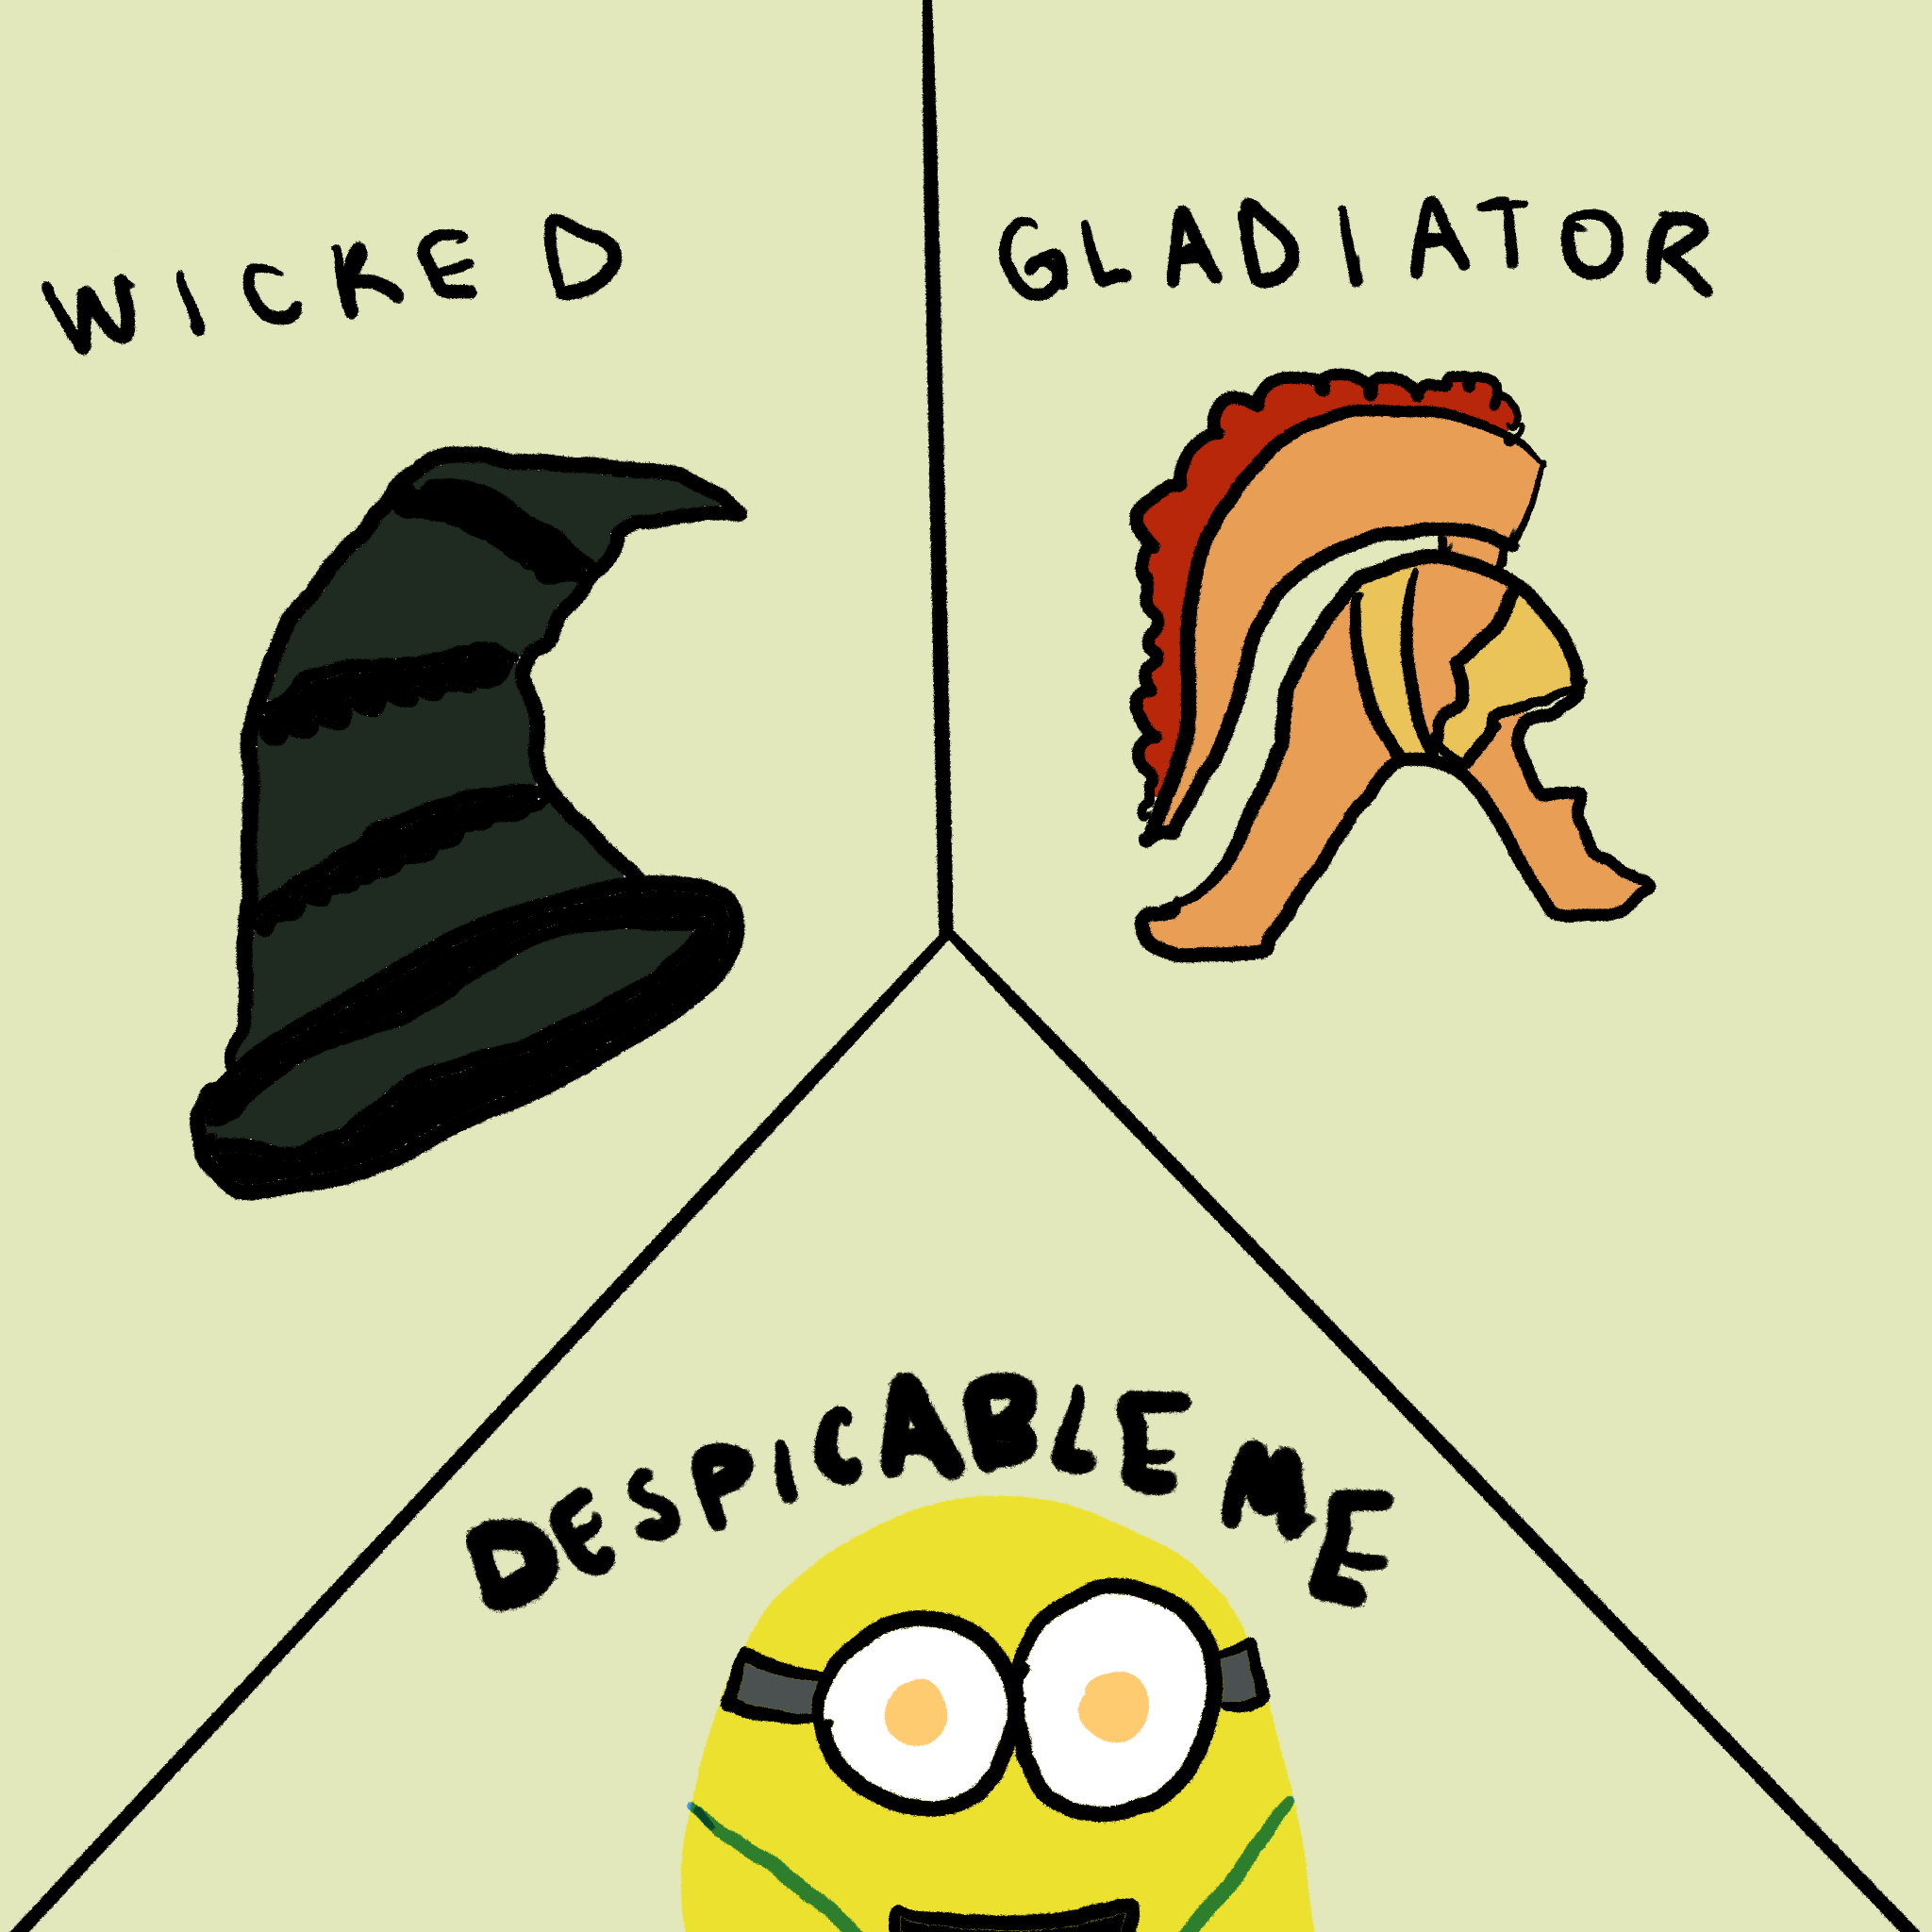 WICKED
GLADIATOR
DESPICABLE ME